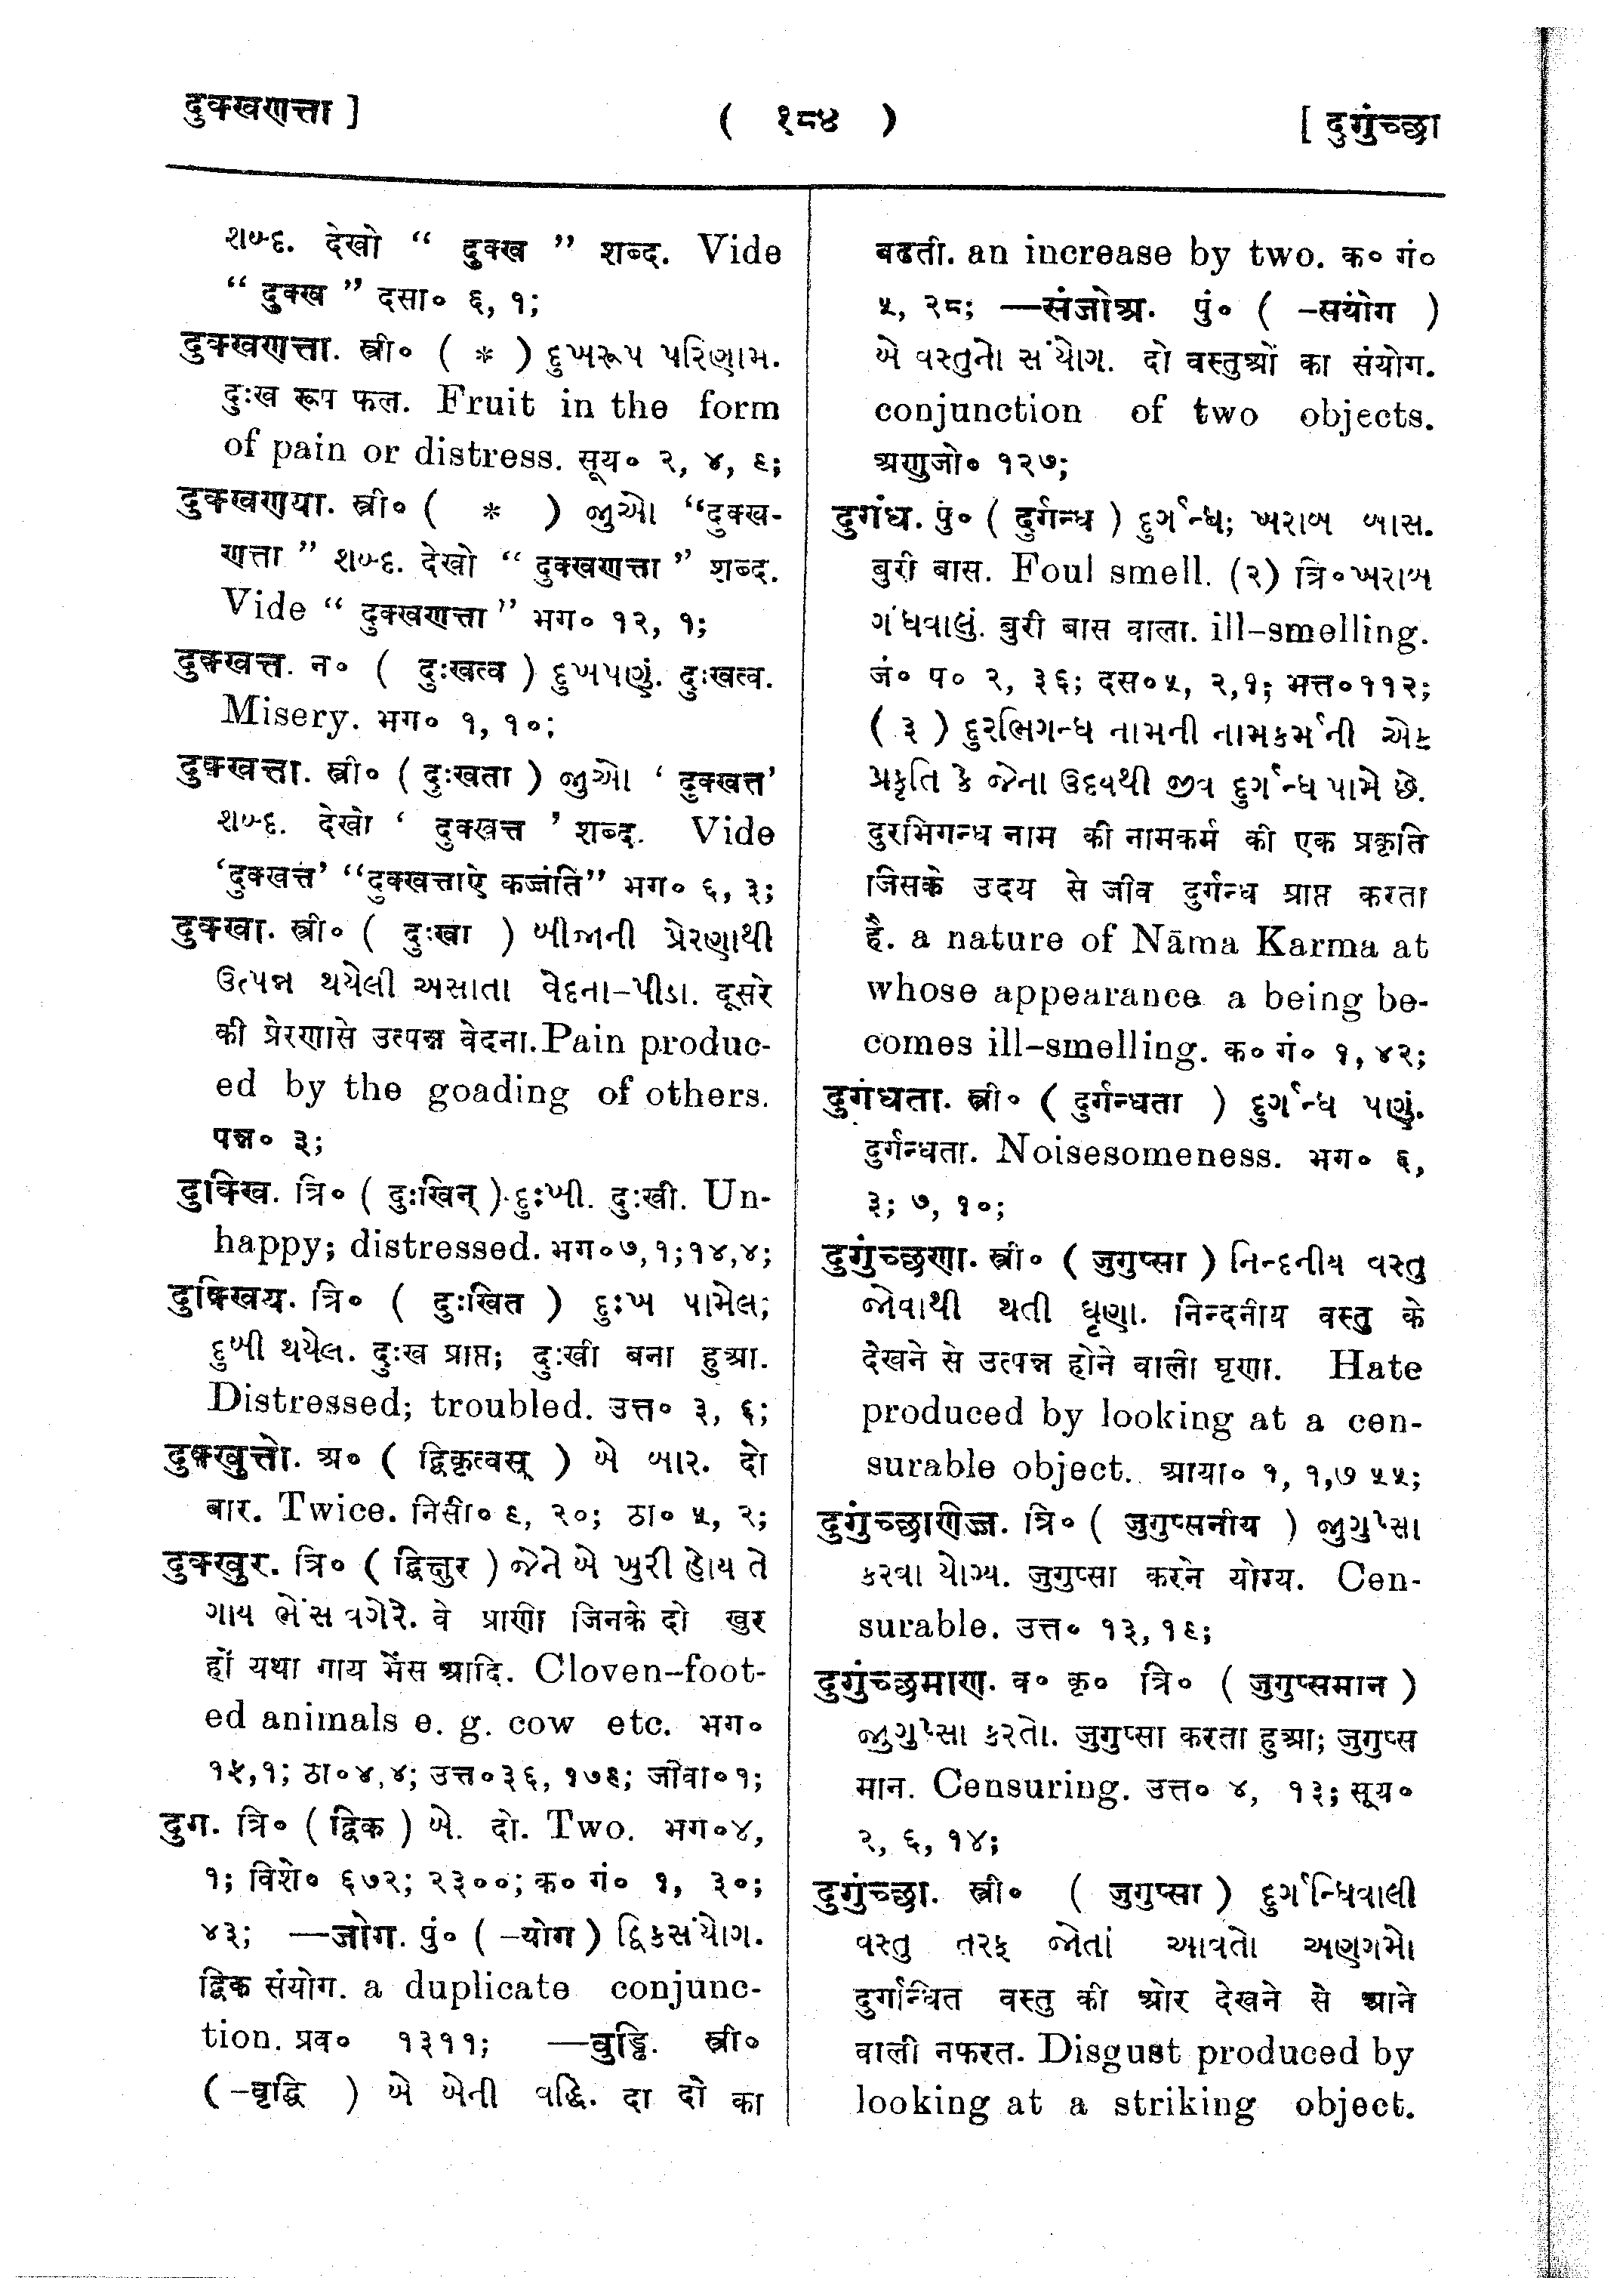 दुक्खणत्ता ]
( १८४ )
[ दुगुंच्छा
શબ્દ. देखो “ दुक्ख ” शब्द. Vide
“ दुक्ख ” दसा० ६, १;
दुक्खणत्ता. स्त्री० ( * ) દુખરૂપ પરિણામ.
दुःख रूप फल. Fruit in the form
of pain or distress. सूय० २, ४, ९;
दुक्खणया. स्त्री० ( * ) જુઓ “दुक्ख-
णत्ता ” શબ્દ. देखो “ दुक्खणत्ता ” शब्द.
Vide “ दुक्खणत्ता ” भग० १२, १;
दुक्खत्त. न० ( दुःखत्व ) દુખપણું. दुःखत्व.
Misery. भग० १, १०;
दुक्खत्ता. स्त्री० ( दुःखता ) જુઓ ‘ दुक्खत्त’
શબ્દ. देखो ‘ दुक्खत्त ’ शब्द. Vide
‘दुक्खत्त’ “दुक्खत्ताऐ कज्जंति” भग० ६, ३;
दुक्खा. स्त्री० ( दुःखा ) બીજાની પ્રેરણાથી
ઉત્પન્ન થયેલી અસાતા વેદના-પીડા. दूसरे
की प्रेरणासे उत्पन्न वेदना. Pain produc-
ed by the goading of others.
पन्न० ३;
दुक्खि. त्रि० ( दुःखिन् ) દુઃખી. दुःखी. Un-
happy; distressed. भग० ७, १; १४, ४;
दुक्खिय. त्रि० ( दुःखित ) દુઃખ પામેલ;
દુખી થયેલ. दुःख प्राप्त; दुःखी बना हुआ.
Distressed; troubled. उत्त० ३, ६;
दुक्खुत्तो. अ० ( द्विकृत्वस् ) બે બાર. दो
बार. Twice. निसी० ९, २०; ठा० ५, २;
दुक्खुर. त्रि० ( द्विक्षुर ) જેને બે ખુરી હોય તે
ગાય ભેંસ વગેરે. वे प्राणी जिनके दो खुर
हों यथा गाय भेंस आदि. Cloven-foot-
ed animals e. g. cow etc. भग०
१५, १; ठा० ४, ४; उत्त० ३६, १७९; जीवा० १;
दुग. त्रि० ( द्विक ) બે. दो. Two. भग० ४,
१; विशे० ६७२; २३००; क० गं० १, ३०;
४३; —जोग. पुं० ( -योग ) દ્વિકસંયોગ.
द्विक संयोग. a duplicate conjunc-
tion. प्रव० १३११; —वुड्ढि. स्त्री०
( -वृद्धि ) બે બેની વૃદ્ધિ. दा दो का
बढती. an increase by two. क० गं०
५, २८; —संजोअ. पुं० ( -सयोग )
બે વસ્તુનો સંયોગ. दो वस्तुओं का संयोग.
conjunction of two objects.
अणुजो० १२७;
दुगंध. पुं० ( दुर्गन्ध ) દુર્ગન્ધ; ખરાબ બાસ.
बुरी बास. Foul smell. (२) त्रि० ખરાબ
ગંધવાલું. बुरी बास वाला. ill-smelling.
जं० प० २, ३६; दस० ५, २, १; भत्त० ११२;
( ३ ) દુરભિગન્ધ નામની નામકર્મની એક
પ્રકૃતિ કે જેના ઉદયથી જીવ દુર્ગન્ધ પામે છે.
दुरभिगन्ध नाम की नामकर्म की एक प्रकृति
जिसके उदय से जीव दुर्गन्ध प्राप्त करता
है. a nature of Nāma Karma at
whose appearance a being be-
comes ill-smelling. क० गं० १, ४२;
दुगंधता. स्त्री० ( दुर्गन्धता ) દુર્ગન્ધ પણું.
दुर्गन्धता. Noisesomeness. भग० ६,
३; ७, १०;
दुगुंच्छणा. स्त्री० ( जुगुप्सा ) નિન્દનીય વસ્તુ
જોવાથી થતી ઘૃણા. निन्दनीय वस्तु के
देखने से उत्पन्न होने वाली घृणा. Hate
produced by looking at a cen-
surable object. आया० १, १, ७ ५५;
दुगुंच्छाणिज्ज. त्रि० ( जुगुप्सनीय ) જુગુપ્સા
કરવા યોગ્ય. जुगुप्सा करने योग्य. Cen-
surable. उत्त० १३, १९;
दुगुंच्छमाण. व० कृ० त्रि० ( जुगुप्समान )
જુગુપ્સા કરતો. जुगुप्सा करता हुआ; जुगुप्स
मान. Censuring. उत्त० ४, १३; सूय०
२, ६, १४;
दुगुंच्छा. स्त्री० ( जुगुप्सा ) દુર્ગન્ધિવાલી
વસ્તુ તરફ જોતાં આવતો અણગમો
दुर्गन्धित वस्तु की ओर देखने से आने
वाली नफरत. Disgust produced by
looking at a striking object.